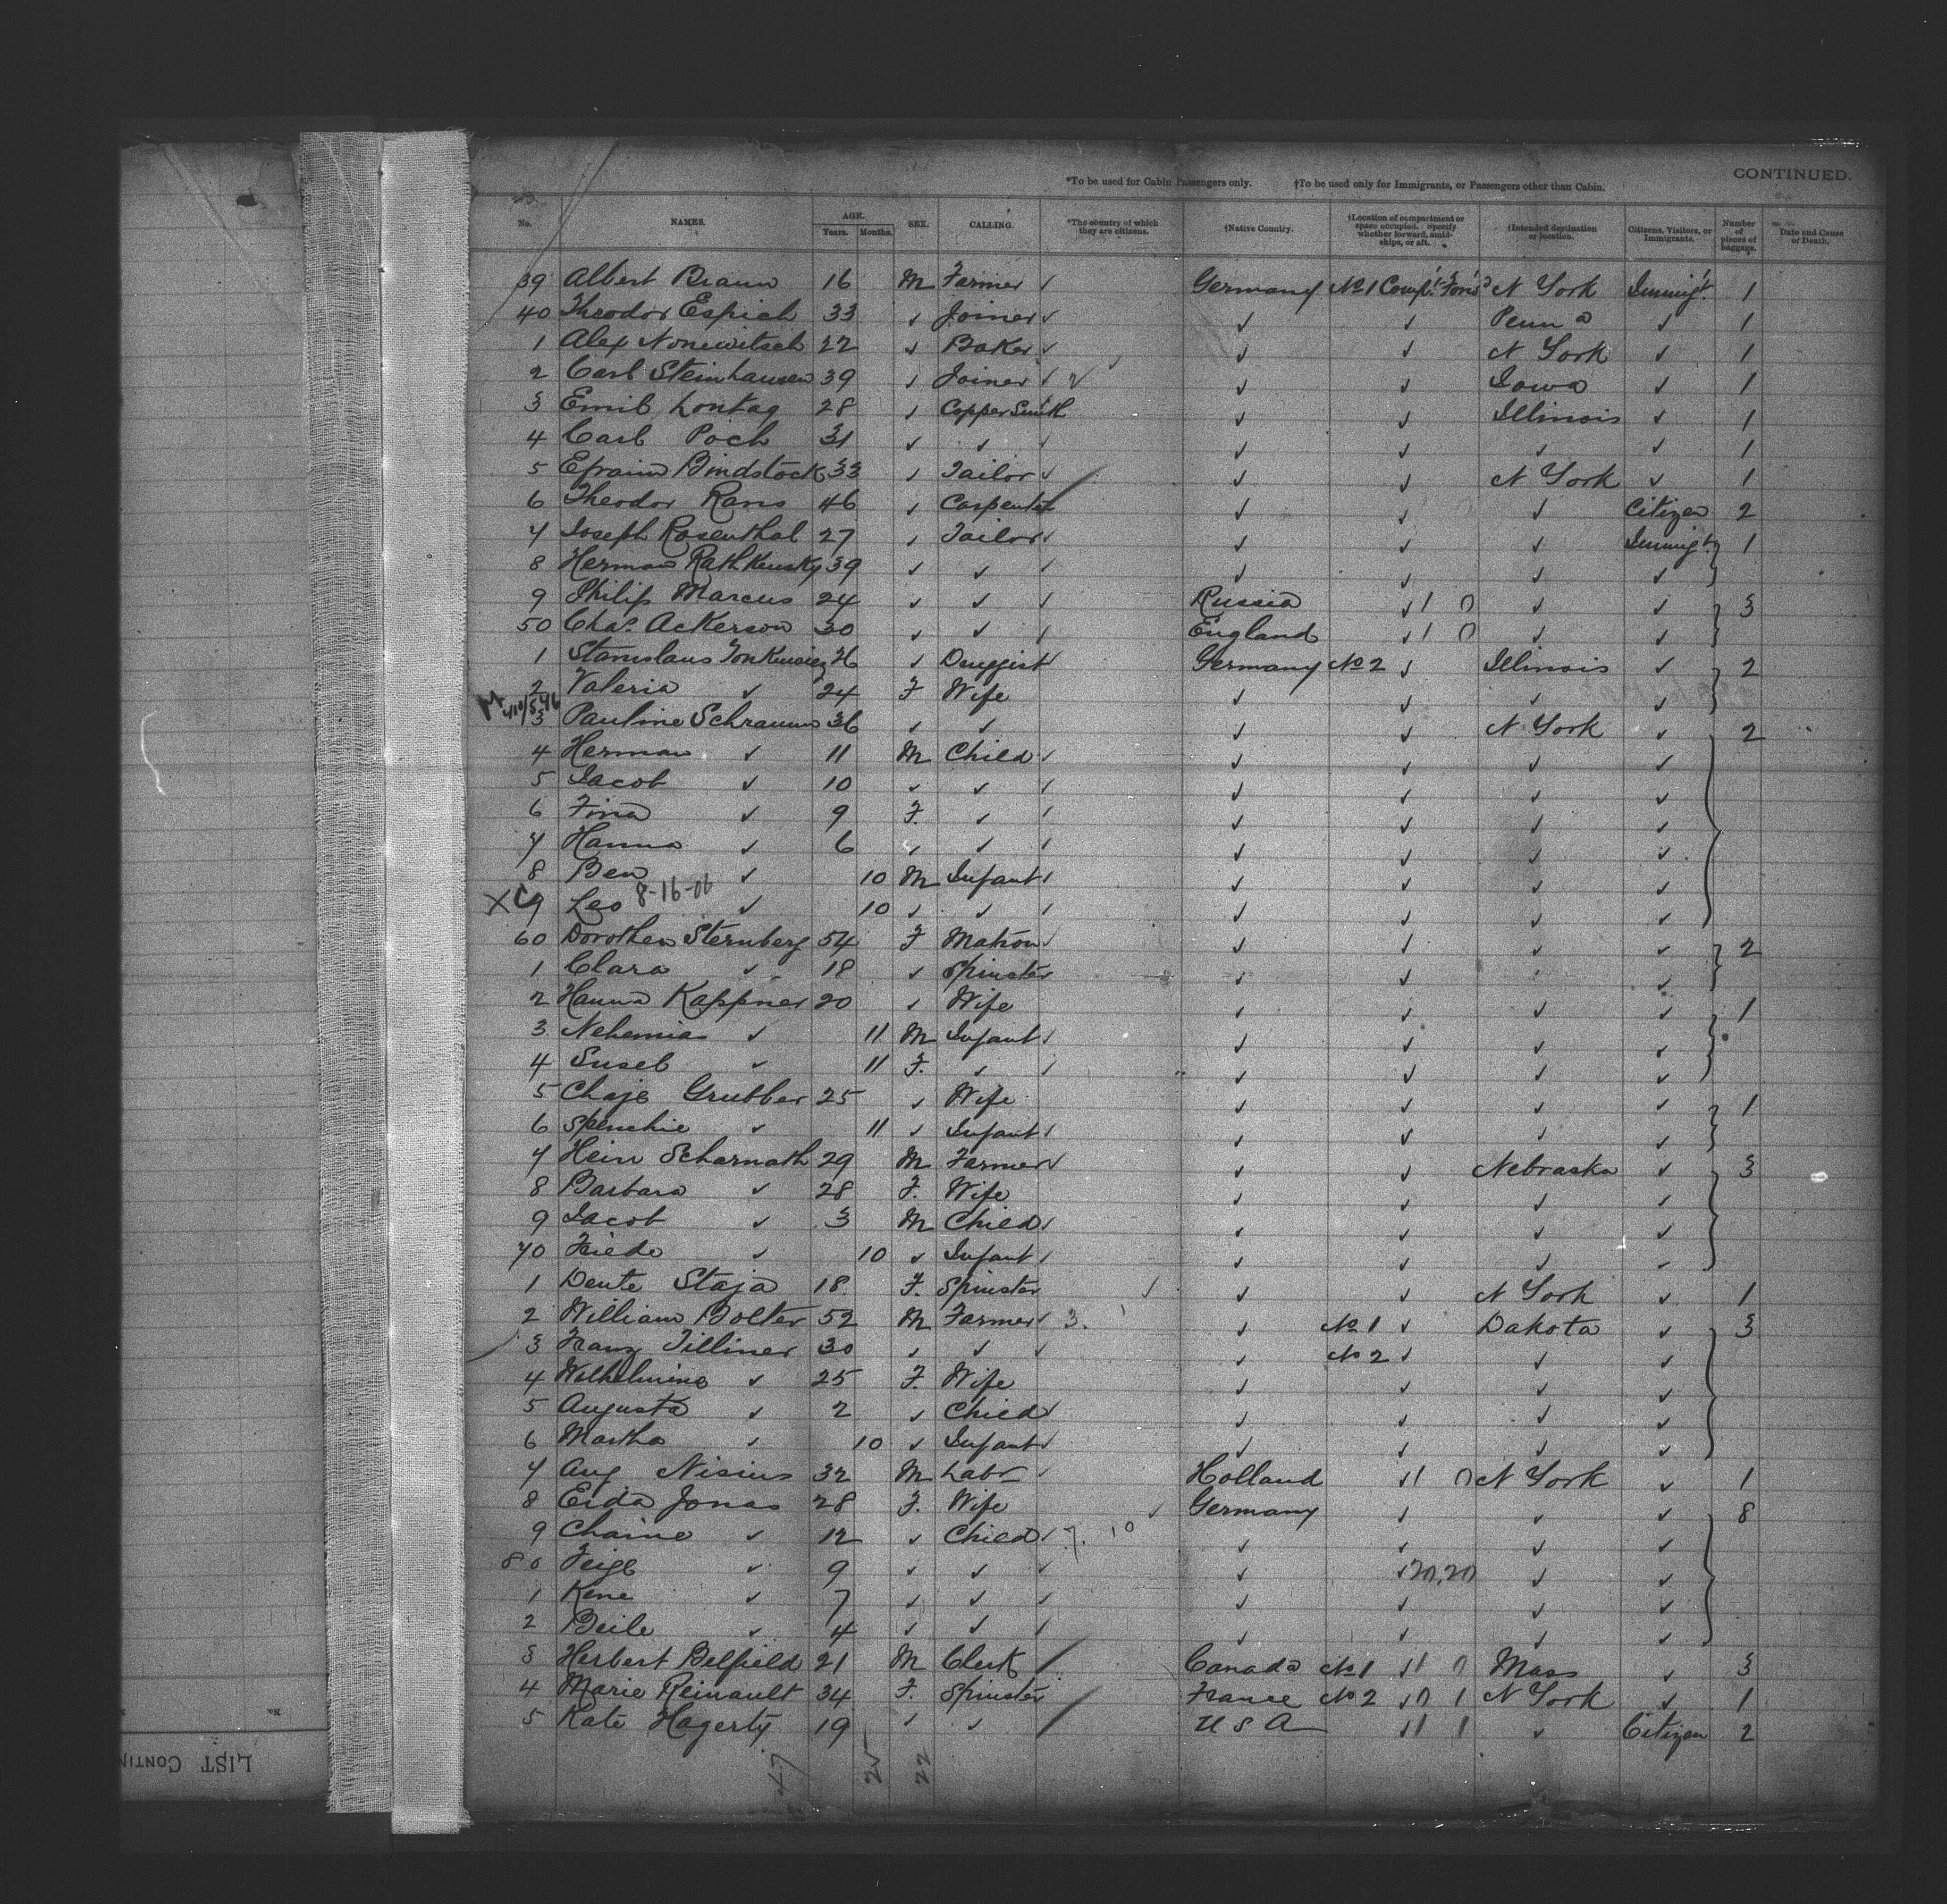 CONTINUED.
*To be used for Cabin Passengers only. †To be used only for Immigrants, or Passengers other than Cabin.
No. NAMES. AGE. Years. Months. SEX. CALLING. *The country of which they are citizens. †Native Country. †Location of compartment or space occupied. Specify whether forward, amidships, or aft. †Intended destination or location. Citizens, Visitors, or Immigrants. Number of pieces of baggage. Date and Cause of Death.
39 Albert Braun 16 M Farmer ✓ Germany No 1 Compt N York Immigt. 1
40 Theodor Espich 33 ✓ Joiner ✓ ✓ ✓ Penn a ✓ 1
1 Alex Nonewitsch 22 ✓ Baker ✓ ✓ ✓ N York ✓ 1
2 Carl Steinhausen 39 ✓ Joiner ✓ ✓ ✓ Iowa ✓ 1
3 Emil Lontag 28 ✓ Copper Smith ✓ ✓ Illinois ✓ 1
4 Carl Poch 31 ✓ ✓ ✓ ✓ ✓ ✓ ✓ 1
5 Efraim Bindstock 33 ✓ Tailor ✓ ✓ ✓ N York ✓ 1
6 Theodor Rans 46 ✓ Carpenter ✓ ✓ ✓ Citizen 2
7 Joseph Rosenthal 27 ✓ Tailor ✓ ✓ ✓ ✓ Immigt. 1
8 Herman Rathkensky 39 ✓ ✓ ✓ ✓ ✓ ✓ ✓
9 Philip Marcus 24 ✓ ✓ ✓ Russia ✓ 1 0 ✓ ✓ 3
50 Chas. Ackerson 30 ✓ ✓ ✓ England ✓ 1 0 ✓ ✓
1 Stanislaus ✓ Druggist ✓ Germany No 2 ✓ Illinois ✓ 2
2 Valeria ✓ 24 F Wife ✓ ✓ ✓ ✓
3 Pauline Schramm 36 ✓ ✓ ✓ ✓ N York ✓ 2
4 Herman ✓ 11 M Child ✓ ✓ ✓ ✓ ✓
5 Jacob ✓ 10 ✓ ✓ ✓ ✓ ✓ ✓ ✓
6 Fina ✓ 9 F. ✓ ✓ ✓ ✓ ✓ ✓
7 Hanna ✓ 6 ✓ ✓ ✓ ✓ ✓ ✓ ✓
8 Ben ✓ 10 M Infant ✓ ✓ ✓ ✓ ✓
XC 9 Leo 8-16-06 ✓ 10 ✓ ✓ ✓ ✓ ✓ ✓ ✓
60 Dorothea Sternberg 54 F Matron ✓ ✓ ✓ ✓ ✓ 2
1 Clara ✓ 18 ✓ Spinster ✓ ✓ ✓ ✓
2 Hanna Kappner 20 ✓ Wife ✓ ✓ ✓ ✓ 1
3 Nehemias ✓ 11 M Infant ✓ ✓ ✓ ✓ ✓
4 Susel ✓ 11 F. ✓ ✓ ✓ ✓ ✓ ✓
5 Chaje Grubber 25 ✓ Wife ✓ ✓ ✓ ✓ 1
6 Spenchie ✓ 11 ✓ Infant ✓ ✓ ✓ ✓ ✓
7 Hein Scharnath 29 M Farmer ✓ ✓ ✓ Nebraska ✓ 3
8 Barbara ✓ 28 F. Wife ✓ ✓ ✓ ✓
9 Jacob ✓ 3 M Child ✓ ✓ ✓ ✓ ✓
70 Friede ✓ 10 ✓ Infant ✓ ✓ ✓ ✓ ✓
1 Dente Staja 18 F. Spinster ✓ ✓ ✓ N York ✓ 1
2 William Bolter 52 M Farmer ✓ 3. ✓ No 1 ✓ Dakota ✓ 3
3 Franz Tilliner 30 ✓ ✓ ✓ ✓ No 2 ✓ ✓ ✓
4 Wilhelmine ✓ 25 F. Wife ✓ ✓ ✓ ✓
5 Augusta ✓ 2 ✓ Child ✓ ✓ ✓ ✓ ✓
6 Martha ✓ 10 ✓ Infant ✓ ✓ ✓ ✓ ✓
7 Aug Nisius 32 M Labr ✓ Holland ✓ 1 0 N York ✓ 1
8 Eida Jonas 28 F. Wife ✓ Germany ✓ ✓ ✓ 8
9 Chaine ✓ 12 ✓ Child ✓ 7. 10 ✓ ✓ ✓ ✓
80 Feige ✓ 9 ✓ ✓ ✓ ✓ ✓ 20,20 ✓ ✓
1 Kene ✓ 7 ✓ ✓ ✓ ✓ ✓ ✓ ✓
2 Beile ✓ 4 ✓ ✓ ✓ ✓ ✓ ✓ ✓
3 Herbert Belfield 21 M Clerk Canada No 1 ✓ 1 0 Mass ✓ 3
4 Marie Reinault 34 F. Spinster France No 2 ✓ 0 1 N York ✓ 1
5 Kate Hagerty 19 ✓ ✓ U S A ✓ 1 1 ✓ Citizen 2
47 25 22
LIST CONTIN